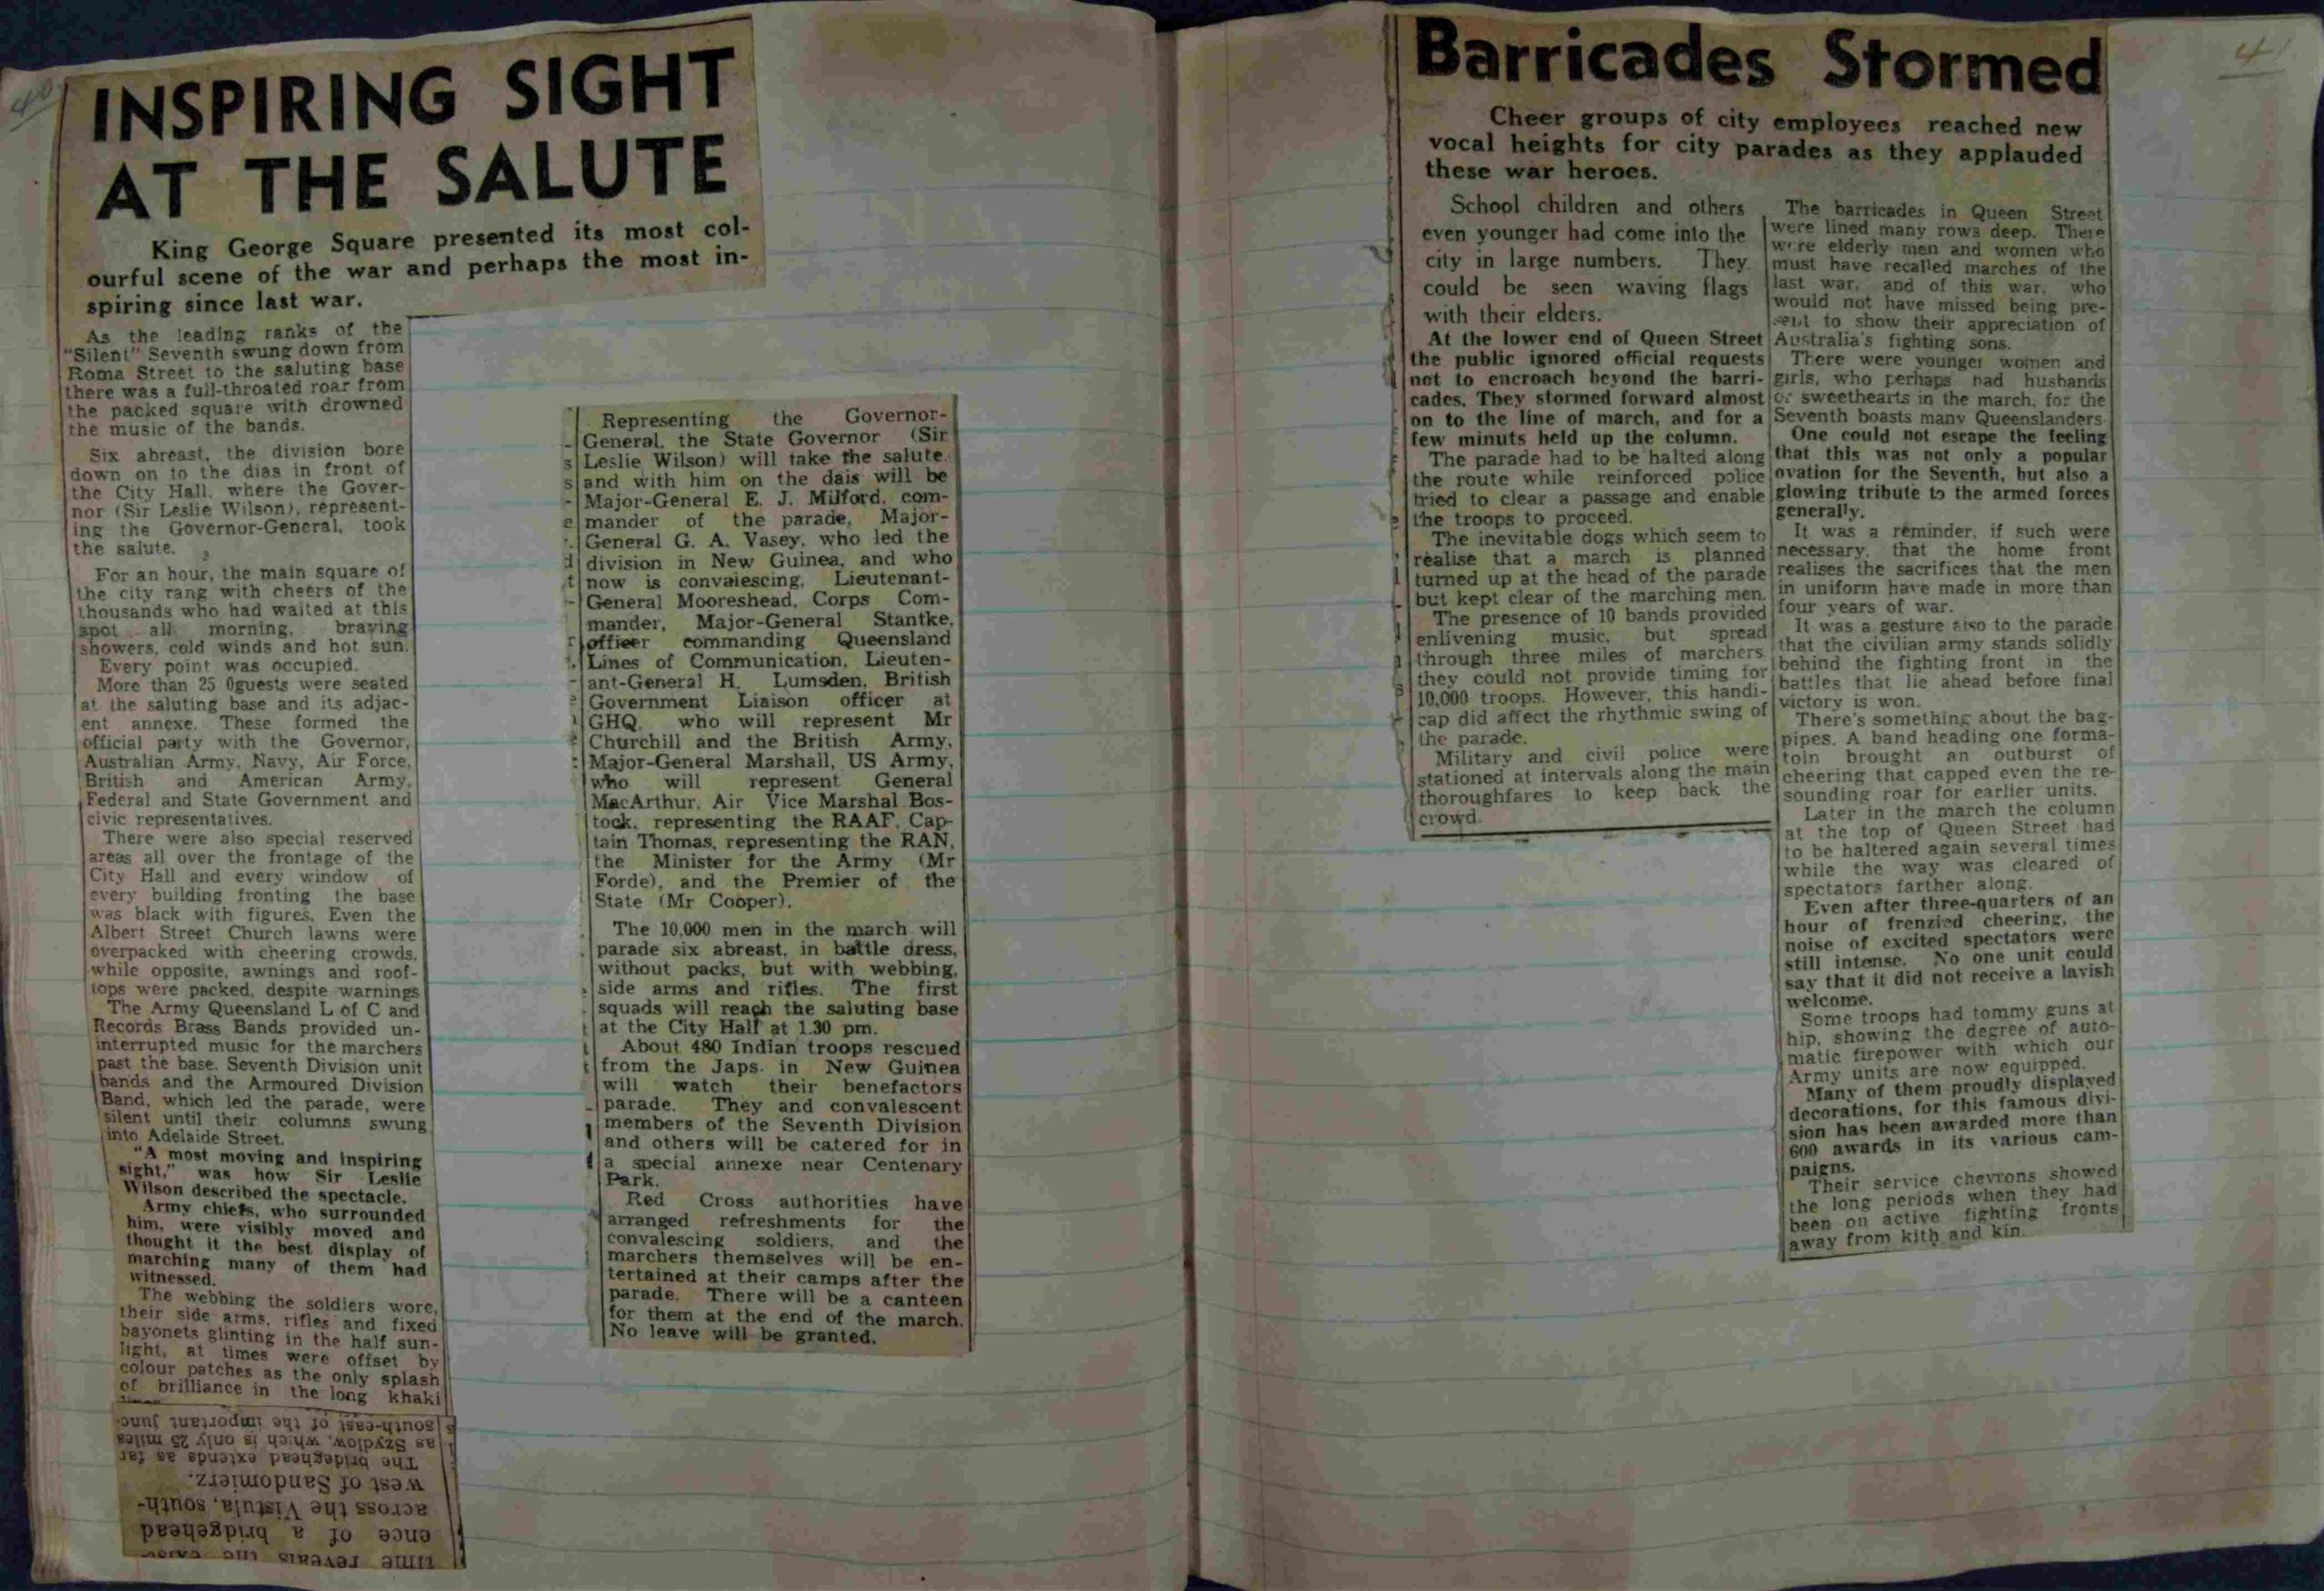 40
INSPIRING SIGHT
AT THE SALUTE
King George Square presented its most col-
ourful scene of the war and perhaps the most in-
spiring since last war.
As the leading ranks of the
"Silent" Seventh swung down from
Roma Street to the saluting base
there was a full-throated roar from
the packed square with drowned
the music of the bands.
Six abreast, the division bore
down on to the dias in front of
the City Hall, where the Gover-
nor (Sir Leslie Wilson), represent-
ing the Governor-General, took
the salute.
For an hour, the main square of
the city rang with cheers of the
thousands who had waited at this
spot all morning, braving
showers, cold winds and hot sun.
Every point was occupied.
More than 25 0guests were seated
at the saluting base and its adjac-
ent annexe. These formed the
official party with the Governor,
Australian Army, Navy, Air Force,
British and American Army,
Federal and State Government and
civic representatives.
There were also special reserved
areas all over the frontage of the
City Hall and every window of
every building fronting the base
was black with figures. Even the
Albert Street Church lawns were
overpacked with cheering crowds,
while opposite, awnings and roof-
tops were packed, despite warnings
The Army Queensland L of C and
Records Brass Bands provided un-
interrupted music for the marchers
past the base. Seventh Division unit
bands and the Armoured Division
Band, which led the parade, were
silent until their columns swung
into Adelaide Street.
"A most moving and inspiring
sight," was how Sir Leslie
Wilson described the spectacle.
Army chiefs, who surrounded
him, were visibly moved and
thought it the best display of
marching many of them had
witnessed.
The webbing the soldiers wore,
their side arms, rifles and fixed
bayonets glinting in the half sun-
light, at times were offset by
colour patches as the only splash
of brilliance in the long khaki
time reveals the exist-
ence of a bridgehead
across the Vistula, south-
west of Sandomierz.
The bridgehead extends as far
as Szydlow, which is only 25 miles
south-east of the important junc-
Representing the Governor-
General, the State Governor (Sir
Leslie Wilson) will take the salute,
and with him on the dais will be
Major-General E. J. Milford, com-
mander of the parade, Major-
General G. A. Vasey, who led the
division in New Guinea, and who
now is convalescing, Lieutenant-
General Mooreshead, Corps Com-
mander, Major-General Stantke,
officer commanding Queensland
Lines of Communication, Lieuten-
ant-General H. Lumsden, British
Government Liaison officer at
GHQ, who will represent Mr
Churchill and the British Army,
Major-General Marshall, US Army,
who will represent General
MacArthur, Air Vice Marshal Bos-
tock, representing the RAAF, Cap-
tain Thomas, representing the RAN,
the Minister for the Army (Mr
Forde), and the Premier of the
State (Mr Cooper).
The 10,000 men in the march will
parade six abreast, in battle dress,
without packs, but with webbing,
side arms and rifles. The first
squads will reach the saluting base
at the City Hall at 1.30 pm.
About 480 Indian troops rescued
from the Japs. in New Guinea
will watch their benefactors
parade. They and convalescent
members of the Seventh Division
and others will be catered for in
a special annexe near Centenary
Park.
Red Cross authorities have
arranged refreshments for the
convalescing soldiers, and the
marchers themselves will be en-
tertained at their camps after the
parade. There will be a canteen
for them at the end of the march.
No leave will be granted.
41
Barricades Stormed
Cheer groups of city employees reached new
vocal heights for city parades as they applauded
these war heroes.
School children and others
even younger had come into the
city in large numbers. They
could be seen waving flags
with their elders.
At the lower end of Queen Street
the public ignored official requests
not to encroach beyond the barri-
cades. They stormed forward almost
on to the line of march, and for a
few minuts held up the column.
The parade had to be halted along
the route while reinforced police
tried to clear a passage and enable
the troops to proceed.
The inevitable dogs which seem to
realise that a march is planned
turned up at the head of the parade
but kept clear of the marching men.
The presence of 10 bands provided
enlivening music, but spread
through three miles of marchers
they could not provide timing for
10,000 troops. However, this handi-
cap did affect the rhythmic swing of
the parade.
Military and civil police were
stationed at intervals along the main
thoroughfares to keep back the
crowd.
The barricades in Queen Street
were lined many rows deep. There
were elderly men and women who
must have recalled marches of the
last war, and of this war, who
would not have missed being pre-
sent to show their appreciation of
Australia's fighting sons.
There were younger women and
girls, who perhaps had husbands
or sweethearts in the march, for the
Seventh boasts many Queenslanders.
One could not escape the feeling
that this was not only a popular
ovation for the Seventh, but also a
glowing tribute to the armed forces
generally.
It was a reminder, if such were
necessary, that the home front
realises the sacrifices that the men
in uniform have made in more than
four years of war.
It was a gesture also to the parade
that the civilian army stands solidly
behind the fighting front in the
battles that lie ahead before final
victory is won.
There's something about the bag-
pipes. A band heading one forma-
toin brought an outburst of
cheering that capped even the re-
sounding roar for earlier units.
Later in the march the column
at the top of Queen Street had
to be haltered again several times
while the way was cleared of
spectators farther along.
Even after three-quarters of an
hour of frenzied cheering, the
noise of excited spectators were
still intense. No one unit could
say that it did not receive a lavish
welcome.
Some troops had tommy guns at
hip, showing the degree of auto-
matic firepower with which our
Army units are now equipped.
Many of them proudly displayed
decorations, for this famous divi-
sion has been awarded more than
600 awards in its various cam-
paigns.
Their service chevrons showed
the long periods when they had
been on active fighting fronts
away from kith and kin.